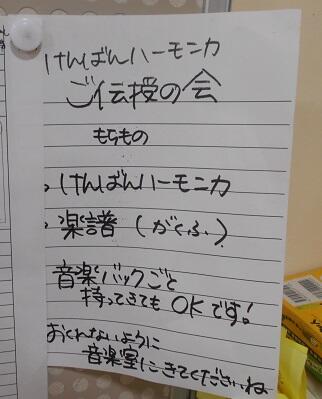 けんばんハーモニカ
ご伝授の会
もちもの
・けんばんハーモニカ
・楽譜(がくふ)
音楽バックごと
持ってきてもOKです!
おくれないように
音楽室にきてくださいね